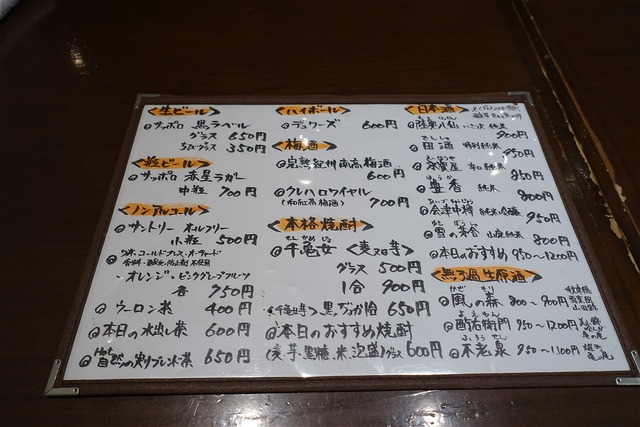 <生ビール>
◎サッポロ 黒ラベル
グラス 650円
ちびグラス 350円
<瓶ビール>
◎サッポロ 赤星ラガー
中瓶 700円
<ノンアルコール>
◎サントリー オールフリー
小瓶 500円
◎
・オレンジ・ピンクグレープフルーツ
各 750円
◎ウーロン茶 400円
◎本日の水出し茶 600円
◎Hot 自然の実りブレンド茶 650円
<ハイボール>
◎デュワーズ 600円
<梅酒>
◎完熟紀州南高梅酒
600円
◎クレハロワイヤル
(和紅茶梅酒) 700円
<本格焼酎>
せん かめ じょ
◎千亀女 <麦又は芋>
グラス 500円
1合 900円
<千亀女芋> 黒ぢょか1合 650円
◎本日のおすすめ焼酎
(麦、芋、黒糖、米、泡盛)グラス 600円
<日本酒>
はっせん
◎陸奥八仙 純米
900円
でんしゅ
◎田酒 特別純米
950円
純米
850円
ほうか
◎豊香 純米
800円
あいづちゅうじょう
◎会津中将 純米吟醸
950円
◎雪の茅舎 山廃純米 800円
◎本日のおすすめ 950~1200円
<無ろ過生原酒>
かぜ もり
◎風の森 800~900円
よえもん
◎酉与右衛門 950~1200円
ふろうせん
◎不老泉 950~1,100円